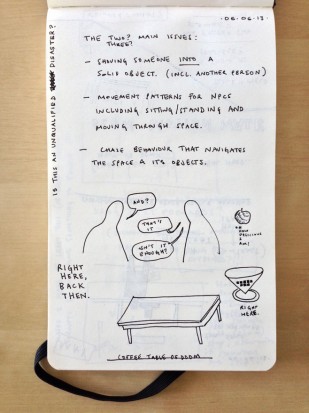 .06.06.13.
IS THIS AN UNQUALIFIED DISASTER?
THE TWO? MAIN ISSUES:
THREE?
- SHOVING SOMEONE INTO A
SOLID OBJECT. (INCL. ANOTHER PERSON)
- MOVEMENT PATTERNS FOR NPCS
INCLUDING SITTING/STANDING AND
MOVING THROUGH SPACE.
- CHASE BEHAVIOUR THAT NAVIGATES
THE SPACE & ITS OBJECTS.
AND?
THAT'S
IT
ISN'T IT
ENOUGH?
HOW
DELICIOUS
AM I
RIGHT
HERE,
BACK
THEN.
RIGHT
HERE.
COFFEE TABLE OF DOOM